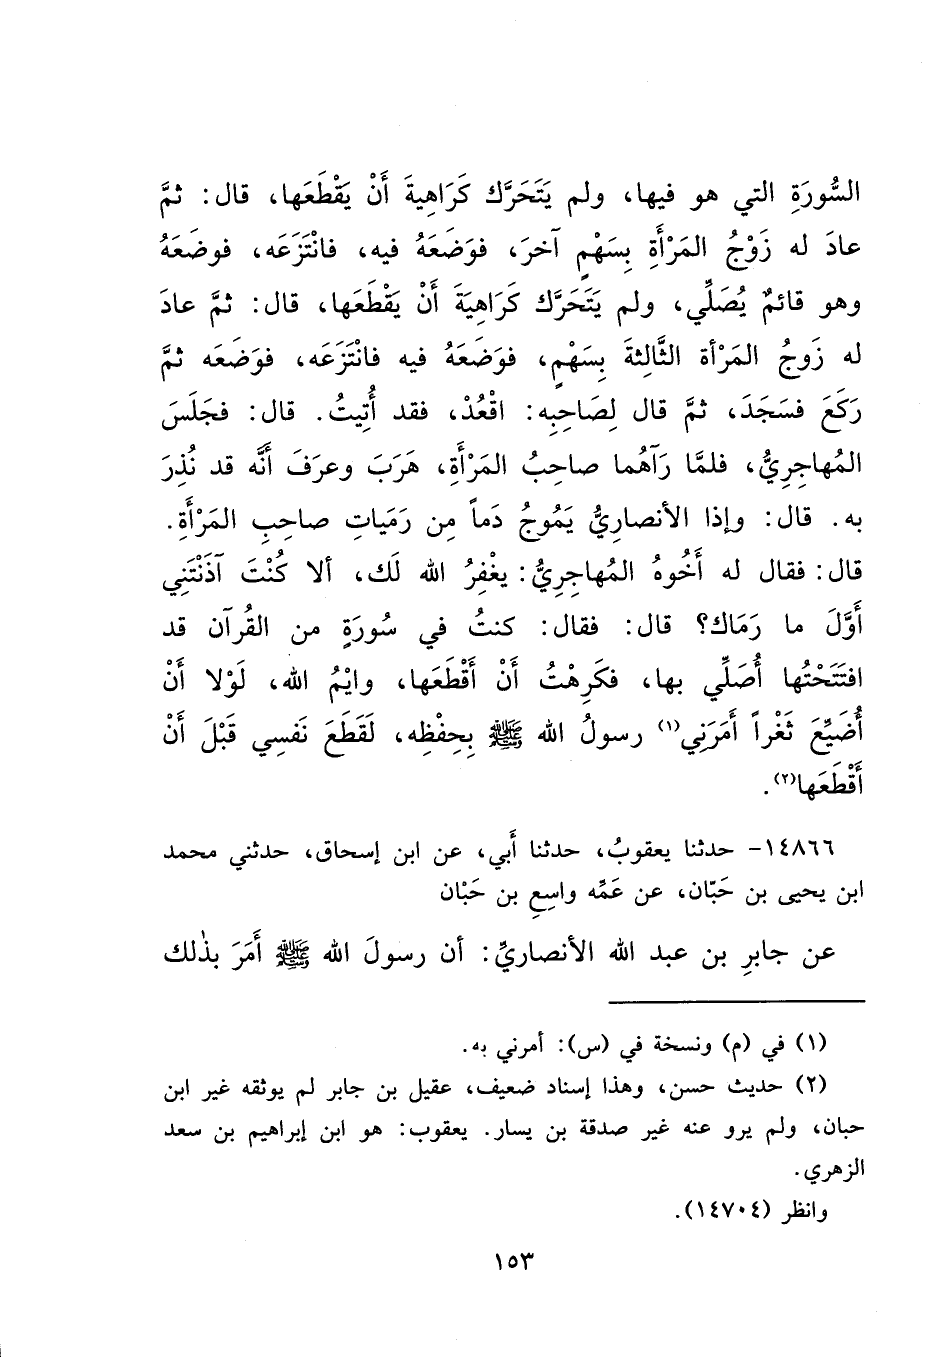 السُّورَةِ التي هو فيها، ولم يَتَحَرَّك كَرَاهِيةَ أَنْ يَقْطَعَها، قال: ثمَّ
عادَ له زَوْجُ المَرْأَةِ بِسَهْمٍ آخرَ، فوَضَعَهُ فيه، فانْتَزَعَه، فوضَعَهُ
وهو قائمٌ يُصَلِّي، ولم يَتَحَرَّك كَرَاهِيَةَ أَنْ يَقْطَعَها، قال: ثمَّ عادَ
له زَوجُ المَرْأة الثَّالِثةَ بِسَهْمٍ، فوَضَعَهُ فيه فانْتَزَعَه، فوَضَعَه ثمَّ
رَكَعَ فسَجَدَ، ثمَّ قال لِصَاحِبِه: اقْعُدْ، فقد أُتِيتُ. قال: فجَلَسَ
المُهاجِرِيُّ، فلمَّا رَآهُما صاحِبُ المَرْأَةِ، هَرَبَ وعرَفَ أنَّه قد نُذِرَ
به. قال: وإذا الأنصارِيُّ يَمُوجُ دَماً مِن رَمَياتِ صاحِبِ المَرْأَةِ.
قال: فقال له أَخُوهُ المُهاجِرِيُّ: يغْفِرُ الله لَك، ألا كُنْتَ آذَنْتَنِي
أَوَّلَ ما رَمَاك؟ قال: فقال: كنتُ في سُورَةٍ من القُرآن قد
افتَتَحْتُها أُصَلِّي بها، فكَرِهْتُ أَنْ أَقْطَعَها، وايْمُ الله، لَوْلا أَنْ
أُضَيِّعَ ثَغْراً أَمَرَنِي(١) رسولُ الله ﷺ بِحِفْظِه، لَقَطَعَ نَفسِي قَبْلَ أَنْ
أَقْطَعَها(٢).
١٤٨٦٦- حدثنا يعقوبُ، حدثنا أَبي، عن ابن إسحاق، حدثني محمد
ابن يحيى بن حَبّان، عن عَمِّه واسِعِ بن حَبْان
عن جابرِ بن عبد الله الأنصاريِّ: أن رسولَ الله ﷺ أَمَرَ بذٰلك
(١) في (م) ونسخة في (س): أمرني به.
(٢) حديث حسن، وهذا إسناد ضعيف، عقيل بن جابر لم يوثقه غير ابن
حبان، ولم يرو عنه غير صدقة بن يسار. يعقوب: هو ابن إبراهيم بن سعد
الزهري.
وانظر (١٤٧٠٤).
١٥٣